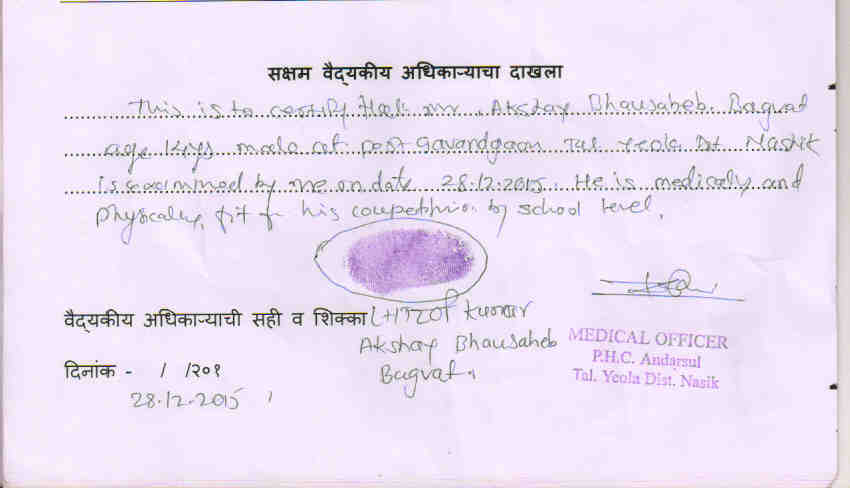 सक्षम वैद्यकीय अधिकाऱ्याचा दाखला
This is to certify that mr. Akshay Bhausaheb. Bagvat
age 14ys male at. post Gavandgaon Tal Yeola Dst. Nashik
is exammined by me on date 28.12.2015. He is medically and
physcaly, fit for his coupetition by school level.
वैद्यकीय अधिकाऱ्याची सही व शिक्का LHTI of kumar
Akshay Bhausaheb
Bagvat.
MEDICAL OFFICER
P.H.C. Andarsul
Tal. Yeola Dist. Nasik
दिनांक - / /२०१
28.12.2015